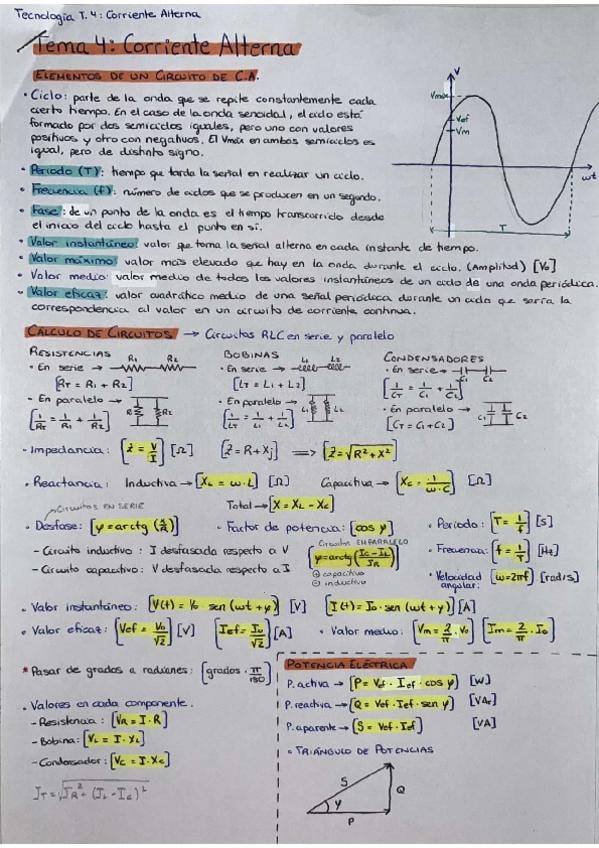 Tecnología T. 4: Corriente Alterna
Tema 4: Corriente Alterna
ELEMENTOS DE UN CIRCUITO DE C.A.
• Ciclo: parte de la onda que se repite constantemente cada
cierto tiempo. En el caso de la onda senoidal, el ciclo está
formado por dos semiciclos iguales, pero uno con valores
positivos y otro con negativos. El Vmáx en ambos semiciclos es
igual, pero de distinto signo.
V
Vmáx
Vef
Vm
wt
T
• Periodo (T): tiempo que tarda la señal en realizar un ciclo.
• Frecuencia (f): número de ciclos que se producen en un segundo.
• Fase: de un punto de la onda es el tiempo transcurrido desde
el inicio del ciclo hasta el punto en sí.
• Valor instantáneo: valor que toma la señal alterna en cada instante de tiempo.
• Valor máximo: valor más elevado que hay en la onda durante el ciclo. (Amplitud) [Vo]
• Valor medio: valor medio de todos los valores instantáneos de un ciclo de una onda periódica.
• Valor eficaz: valor cuadrático medio de una señal periódica durante un ciclo que sería la
correspondencia al valor en un circuito de corriente continua.
CÁLCULO DE CIRCUITOS → Circuitos RLC en serie y paralelo
RESISTENCIAS
• En serie → R1 R2
[RT = R1 + R2]
• En paralelo → R1 R2
[1/RT = 1/R1 + 1/R2]
BOBINAS
• En serie → L1 L2
[LT = L1 + L2]
• En paralelo → L1 L2
[1/LT = 1/L1 + 1/L2]
CONDENSADORES
• En serie → C1 C2
[1/CT = 1/C1 + 1/C2]
• En paralelo → C1 C2
[CT = C1 + C2]
• Impedancia: [Z = V/I] [Ω] [Z = R + Xj] ⇒ [Z = √R² + X²]
• Reactancia: Inductiva → [XL = ω · L] [Ω] Capacitiva → [XC = 1/ω·C] [Ω]
Total → [X = XL - XC]
Circuitos EN SERIE
• Desfase: [φ = arctg (X/R)] • Factor de potencia: [cos φ]
- Circuito inductivo: I desfasada respecto a V
- Circuito capacitivo: V desfasada respecto a I
Circuitos EN PARALELO
[φ = arctg (IC - IL/IR)]
⊕ capacitivo
⊖ inductivo
• Periodo: [T = 1/f] [s]
• Frecuencia: [f = 1/T] [Hz]
• Velocidad angular: [ω = 2πf] [rad/s]
• Valor instantáneo: [V(t) = Vo · sen (wt + φ)] [V] [I(t) = Io · sen (wt + φ)] [A]
• Valor eficaz: [Vef = Vo/√2] [V] [Ief = Io/√2] [A] • Valor medio: [Vm = 2/π · Vo] [Im = 2/π · Io]
* Pasar de grados a radianes: [grados · π/180]
• Valores en cada componente.
- Resistencia: [VR = I · R]
- Bobina: [VL = I · XL]
- Condensador: [VC = I · XC]
IT = √IR² + (IL - IC)²
POTENCIA ELÉCTRICA
P. activa → [P = Vef · Ief · cos φ] [W]
P. reactiva → [Q = Vef · Ief · sen φ] [VAr]
P. aparente → [S = Vef · Ief] [VA]
• TRIÁNGULO DE POTENCIAS
S
Q
φ
P